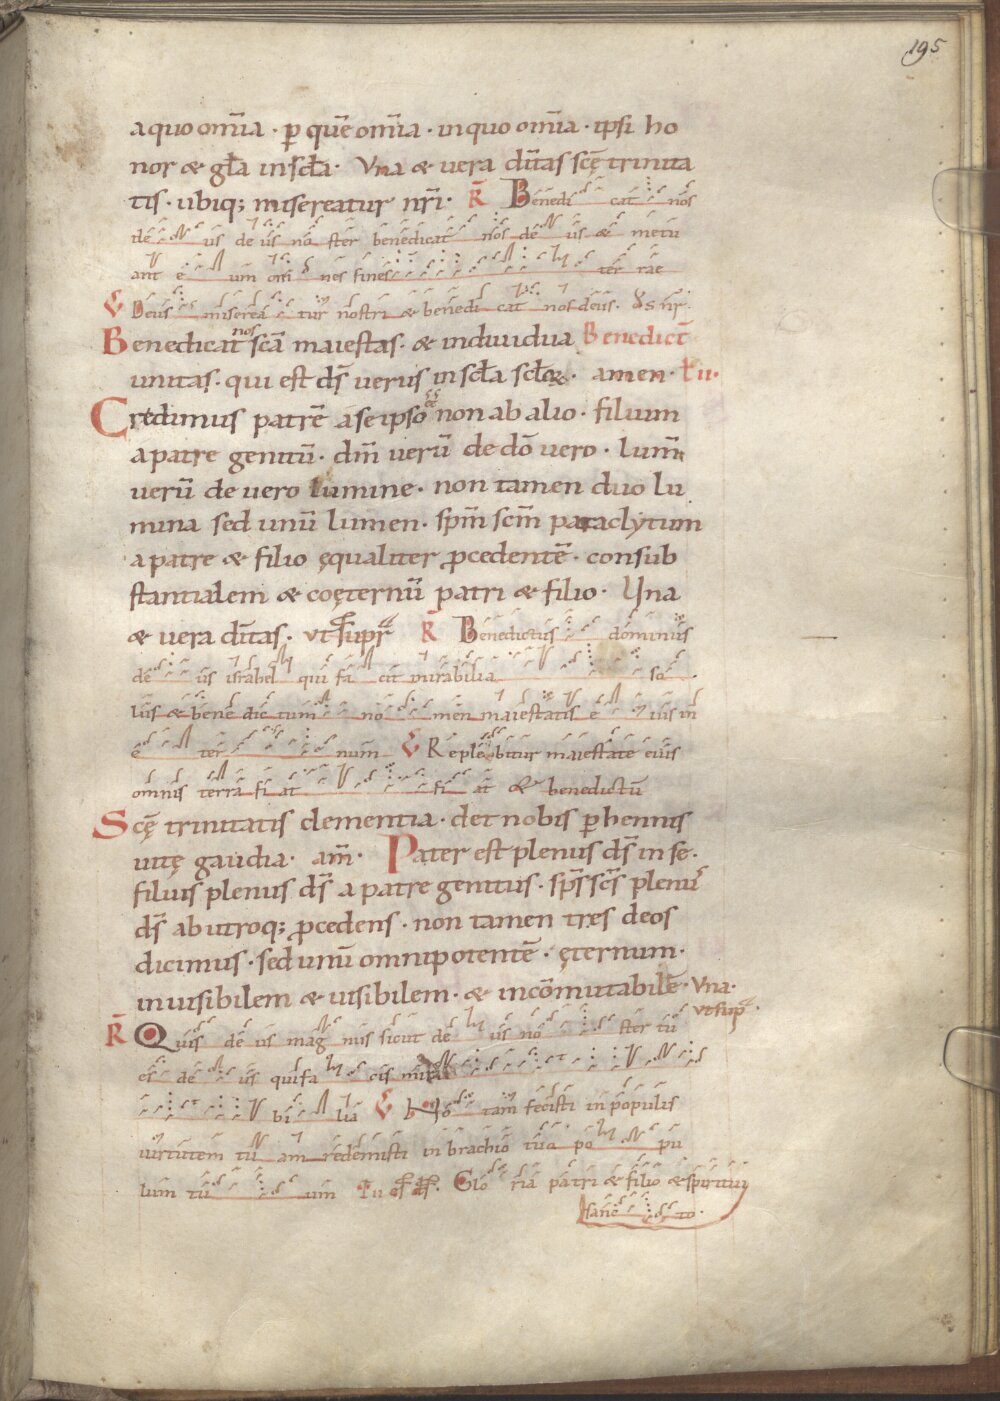 195
a quo om̅ia · p̲ que̅ om̅ia · in quo om̅ia · ipsi ho
nor & gl̅a in sc̅l̅a · Vna & uera d̅itas sc̅ę trinita
tis · ubiq; misereatur nr̅i · R̅ Benedi cat nos
de us de us no ster benedicat nos de us & metu
ant e um om̅ nes fines ter rae
V Deus miserea tur nostri & benedi cat nos deus · D̅s nr̅ ·
Benedicat nos sc̅a maiestas · & indiuidua Benedict̅
unitas · qui est d̅s uerus in sc̅l̅a sc̅l̅oꝝ · amen ·
Credimus patre̅ a se ipso & non ab alio · filium
a patre genitu̅ · dm̅ ueru̅ de do̅ uero · lum̅
ueru̅ de uero lumine · non tamen duo lu
mina sed unu̅ lumen · spm̅ scm̅ paraclytum
a patre & filio ęqualiter p̲cedente̅ · consub
stantialem & coęternu̅ patri & filio · Una
& uera d̅itas · ut sup̲ R̅ Benedictus dominus
de us israhel qui fa cit mirabilia so
lus & bene dictum no men maiestatis e ius in
e ter num V Reple bitur maiestate eius
omnis terra fi at fi at & benedictu̅
Sc̅ę trinitatis clementia · det nobis p̲hennis
uitę gaudia · am̅ · Pater est plenus d̅s in se ·
filius plenus d̅s a patre genitus · sp̅s sc̅s plenus
d̅s ab utroq; p̲cedens · non tamen tres deos
dicimus · sed unu̅ omnipotente̅ · ęternum ·
inuisibilem & uisibilem · & inco̅mutabile̅ · Vna ·
ut sup̲ ·
R̅ Quis de us mag nus sicut de us no ster tu
es de us qui fa cis mira
bi lia V No tam fecisti in populis
uirtutem tu am redemisti in brachio tuo po pu
lum tu um Glo ria patri & filio & spiritui
sanc to ·